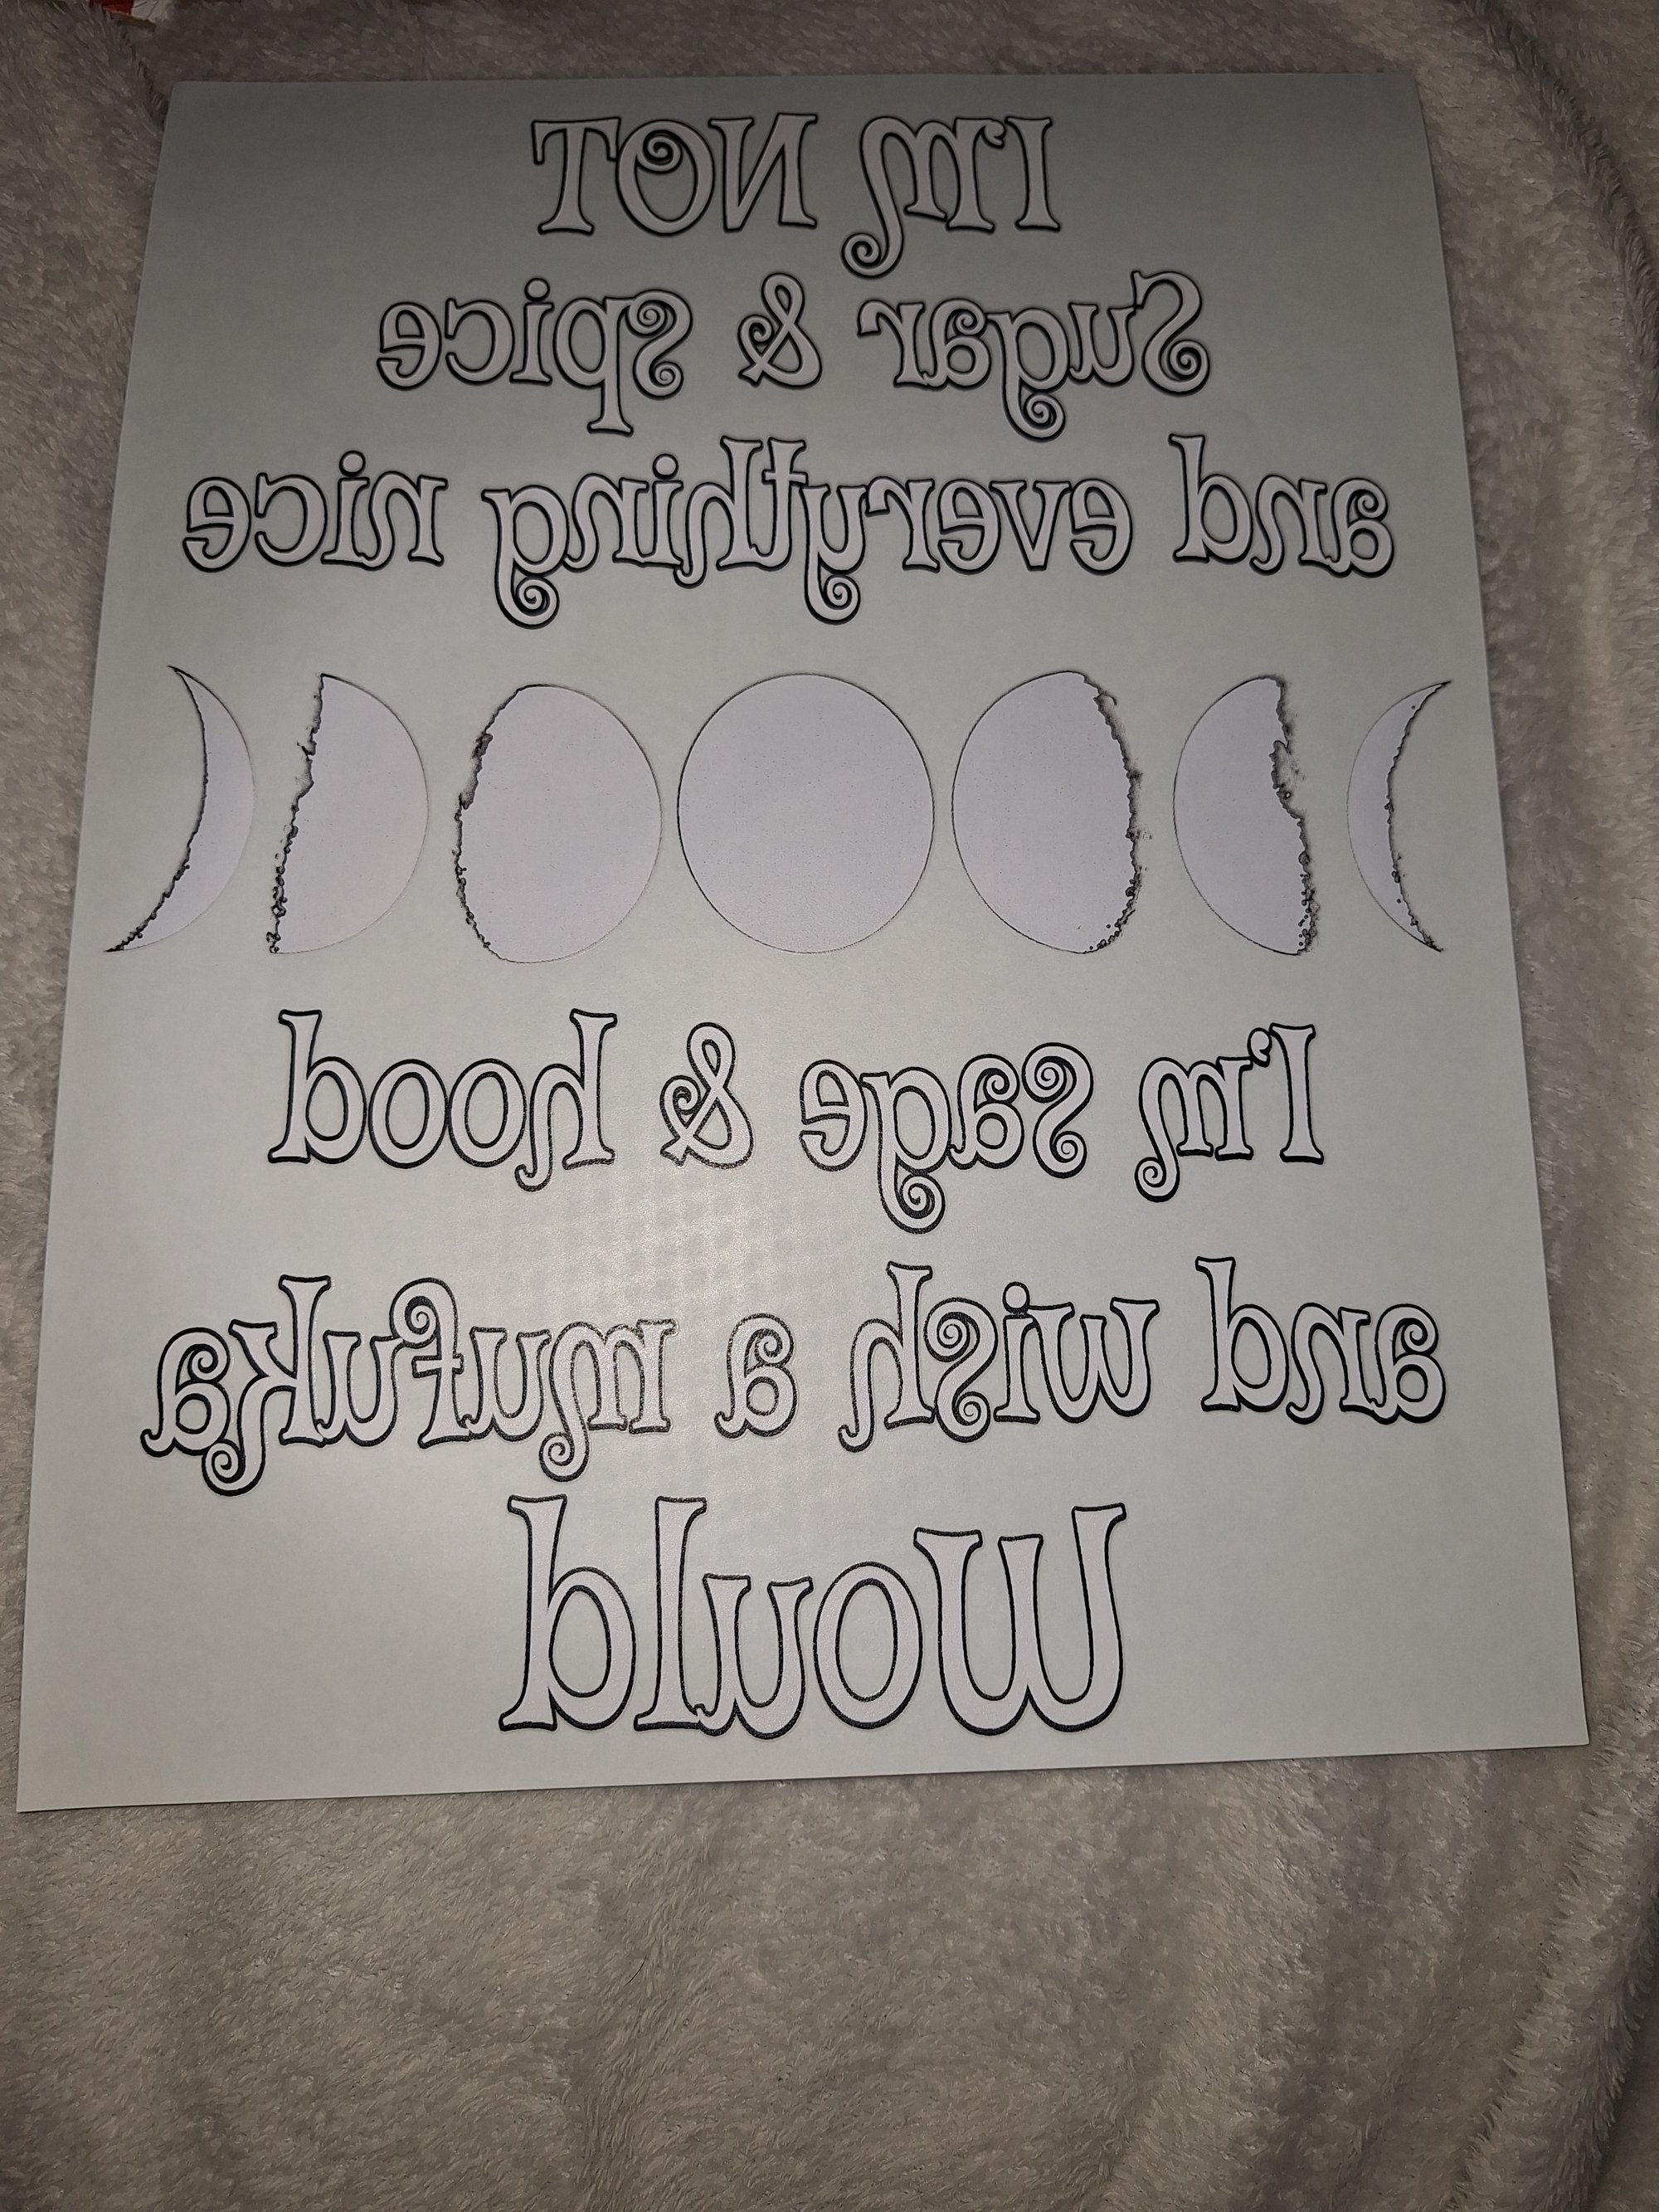 I'm NOT
Sugar & spice
and everything nice
I'm sage & hood
and wish a mufukka
Would